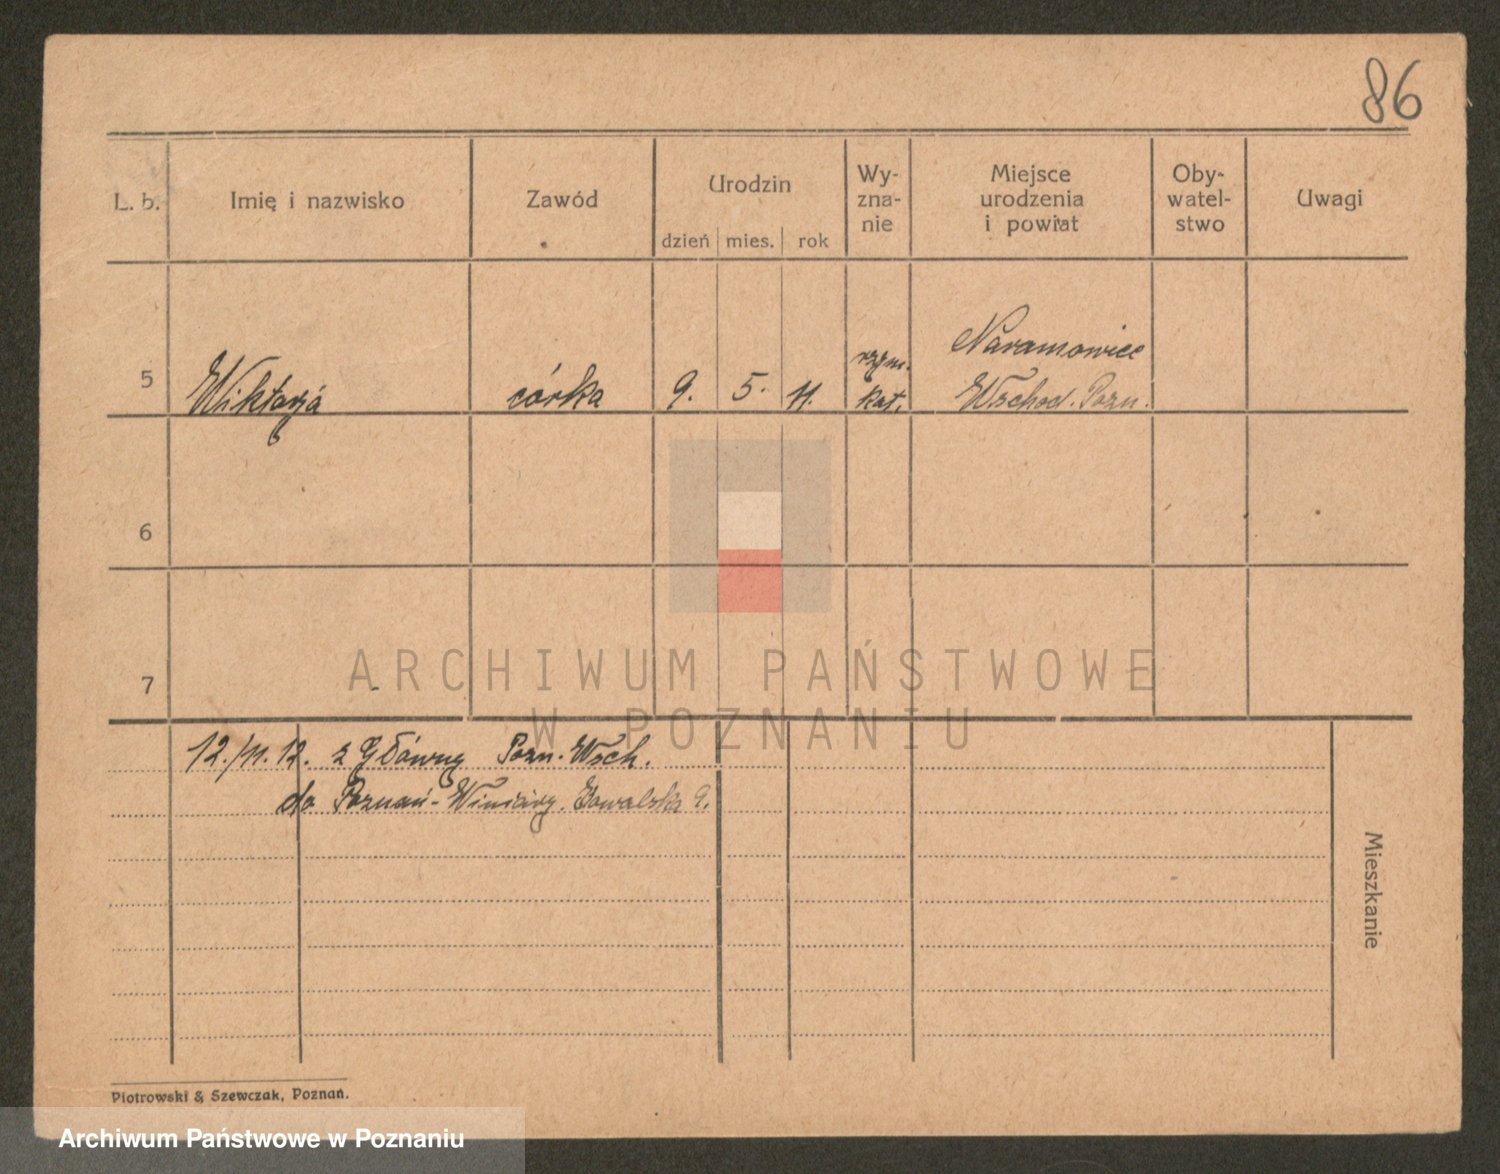 86
L. b.
Imię i nazwisko
Zawód
Urodzin
dzień mies. rok
Wy-
zna-
nie
Miejsce
urodzenia
i powiat
Oby-
watel-
stwo
Uwagi
5 Wiktorja córka 9. 5. 11. rzym. kat. Naramowice
Wschod. Pozn.
6
7
ARCHIWUM PAŃSTWOWE
W POZNANIU
12./11. 12. z Główny Pozn. Wsch.
do Poznań-Winiary. 9.
Mieszkanie
Piotrowski & Szewczak, Poznań.
Archiwum Państwowe w Poznaniu